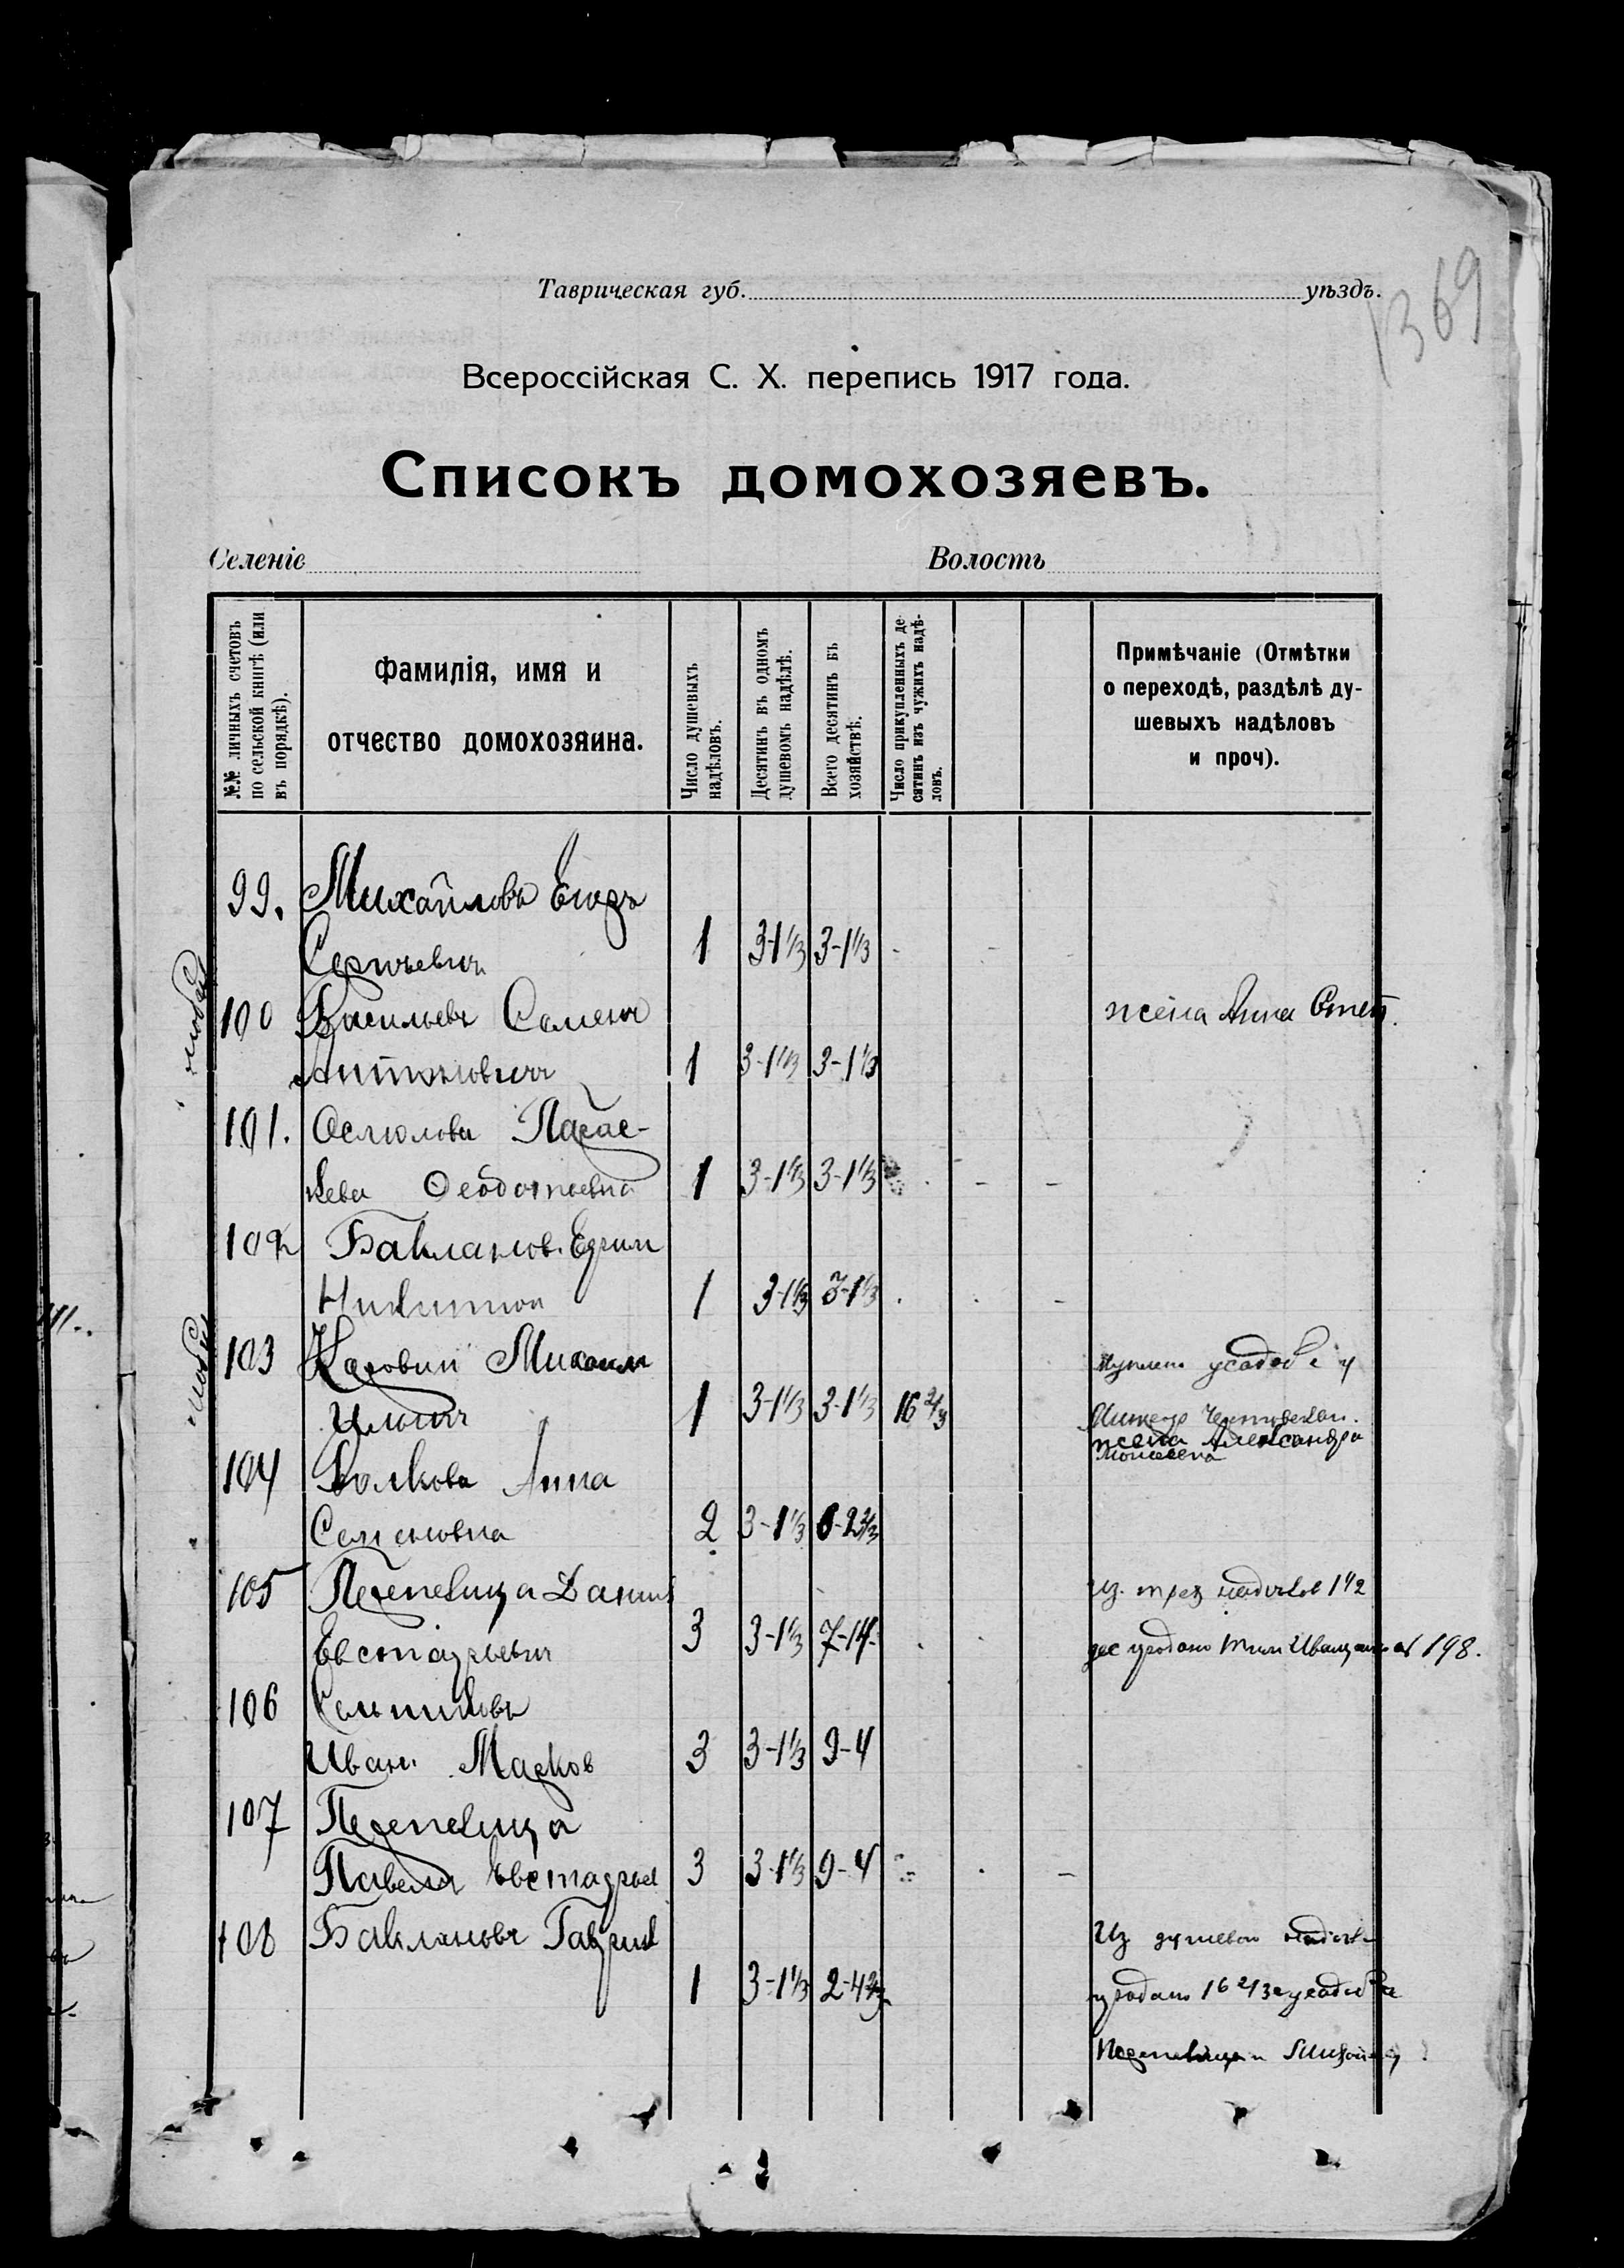 369
Таврическая губ. уѣздъ.
Всероссійская С. Х. перепись 1917 года.
Списокъ домохозяевъ.
Селеніе Волость
№№ личныхъ счетовъ
по сельской книгѣ (или
въ порядкѣ).
Фамилія, имя и
отчество домохозяина.
Число душевыхъ
надѣловъ.
Десятинъ въ одномъ
душевомъ надѣлѣ.
Всего десятинъ въ
хозяйствѣ.
Число прикупленныхъ де-
сятинъ изъ чужихъ надѣ-
ловъ.
Примѣчаніе (Отмѣтки
о переходѣ, раздѣлѣ ду-
шевыхъ надѣловъ
и проч).
99. Михайловъ Егоръ
Сергѣевичъ 1 3-1 1/3 3-1 1/3
100 Васильевъ Семенъ жена Анна Степ.
Антоновичъ 1 3-1 1/3 3-1 1/3
101.
Феодотьевна 1 3-1 1/3 3-1 1/3
102 Баклановъ Ефим
Никитин 1 3-1 1/3 3-1 1/3
103 Михаил усадьбе у
Ильич 1 3-1 1/3 3-1 1/3 16 2/3
жена Александра
Моисеевна
104 Волкова Анна
Семеновна 2 3-1 1/3 6-2 2/3
105 Перепелица Данил Из трех 1 1/2
Евстафьевич 3 3-1 1/3 7-14 дес продано 198.
106 Сальниковъ
Иван Марков 3 3-1 1/3 9-4
107 Перепелица
Павелъ Евстафьев 3 3-1 1/3 9-4
108 Баклановъ Гаврил Из душевого надела
1 3-1 1/3 2-4 2/3 продано 16 2/3
Перепелица